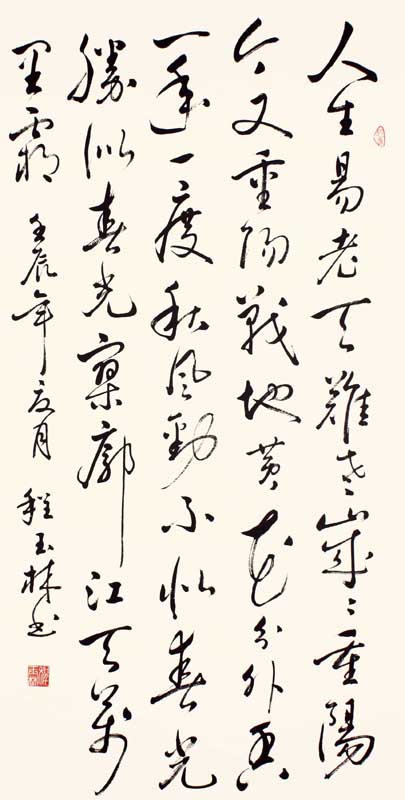 人生易老天難老歲〻重陽
今又重陽戰地黃花分外香
一年一度秋風勁不似春光
勝似春光寥廓江天萬
里霜 壬辰年夏月 程玉林书